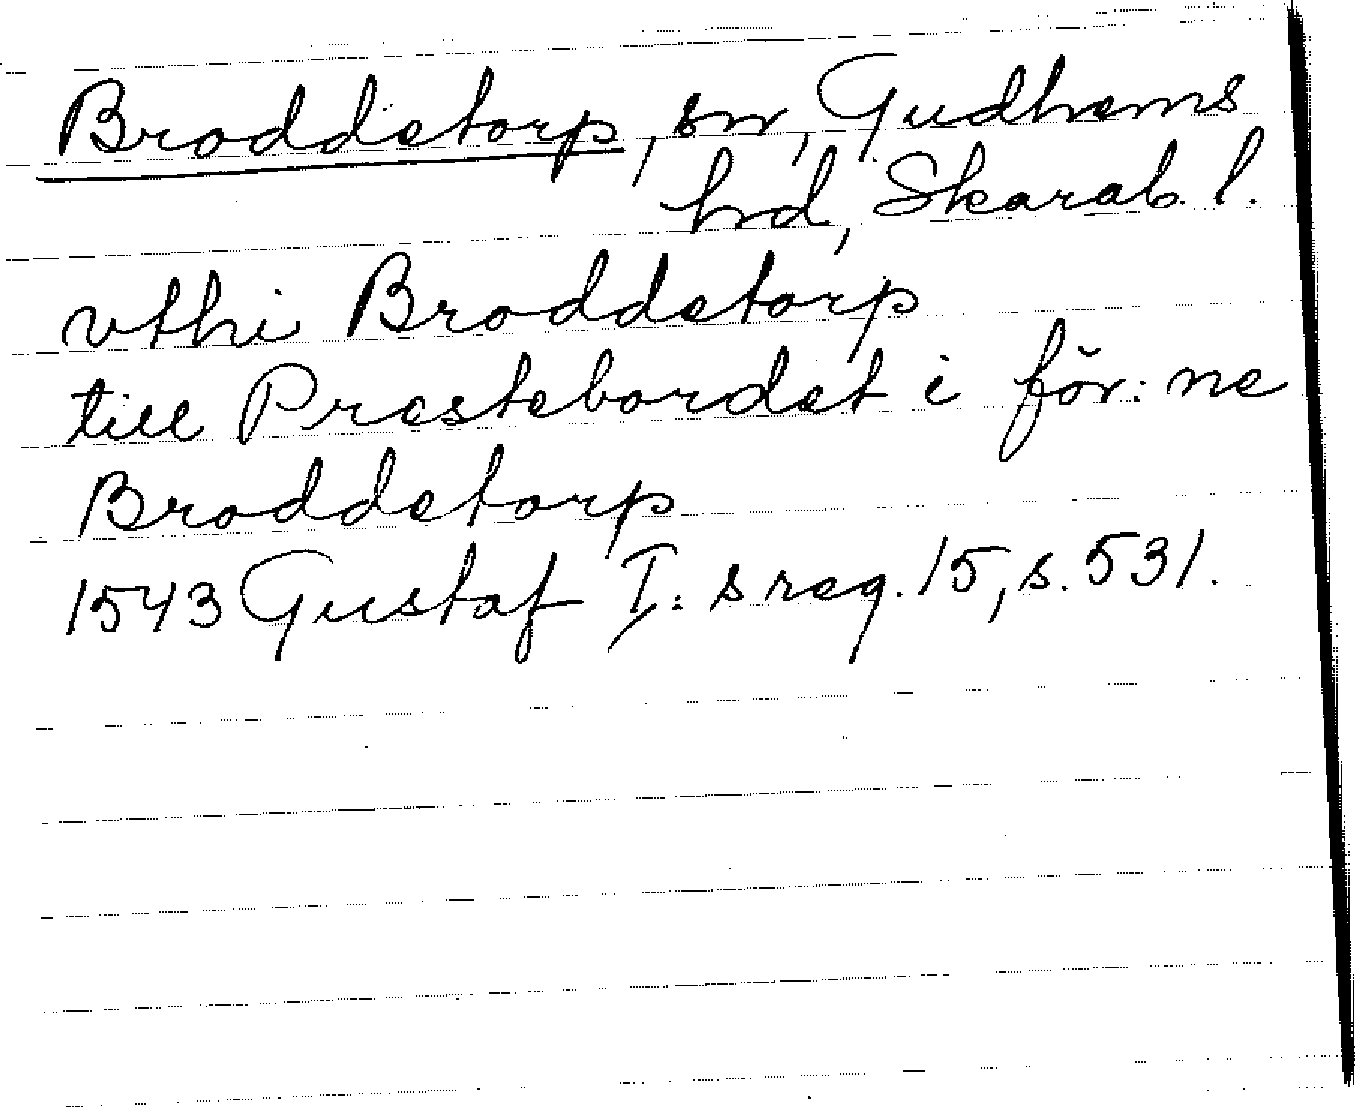 Broddetorp, sn, Gudhems
hd, Skarab. l.
vthi Broddetorp
till Prestebordet i för: ne
Broddetorp
1543 Gustaf I: s reg. 15, s. 531.